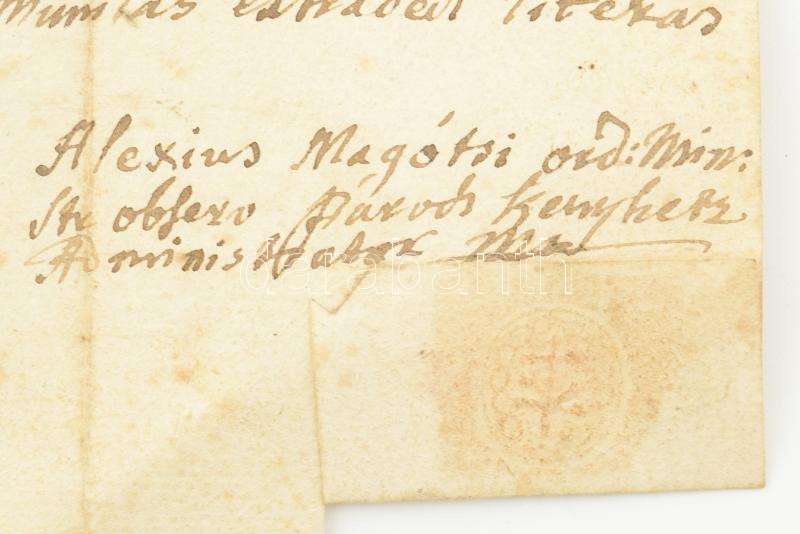 Munitas extradedi literas
Alexius Magótsi ord: Min:
Str observ Pároch Kenyhetz
Administrator
darabanth